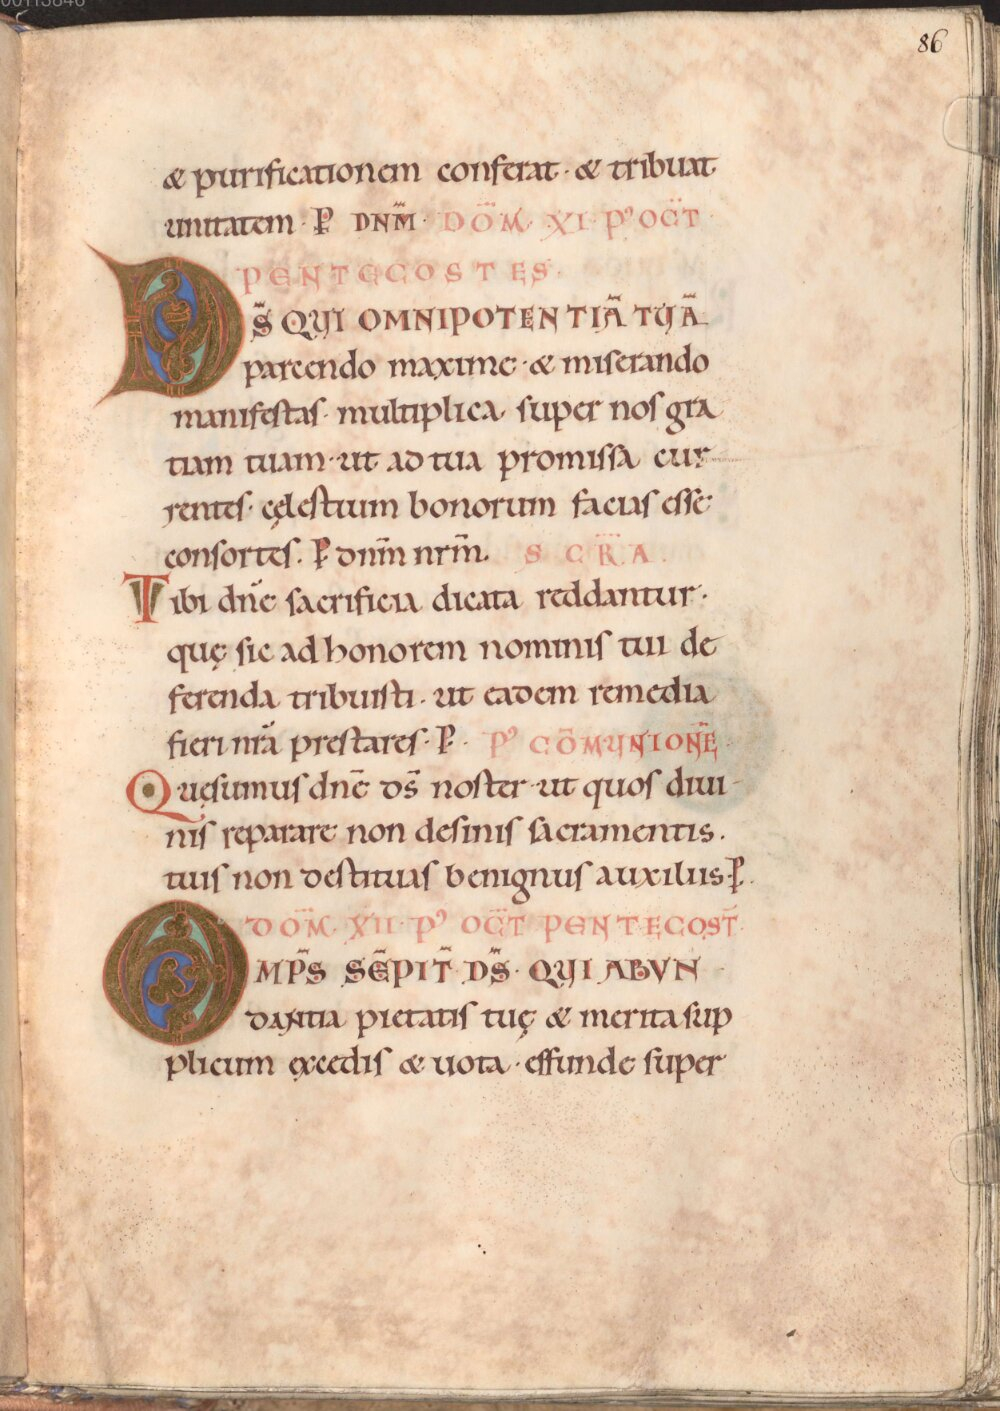 86
& purificationem conferat · & tribuat
unitatem · P DNM̄ · DŌM̄ · XI · P' OCT̄
PENTECOSTES ·
DS̄ QUI OMNIPOTENTIĀ TUĀ
parcendo maxime · & miserando
manifestas · multiplica · super nos gra
tiam tuam · ut ad tua promissa cur
rentes · cęlestium bonorum facias esse
consortes · P dnm̄ nrm̄ · SCR̄A ·
Tibi dn̄e sacrificia dicata reddantur ·
quę sic ad honorem nominis tui de
ferenda tribuisti · ut eadem remedia
fieri nr̄a prestares · P · P' CŌMUNIONĒ
Quęsumus dnē ds̄ noster · ut quos diui
nis reparare non desinis sacramentis ·
tuis non destituas benignus auxiliis · P ·
DŌM̄ · XII · P' OCT̄ PENTECOST̄
OMP̄S SĒPIT̄ DS̄ · QUI ABVN
dantia pietatis tuę & merita sup
plicum excedis & uota · effunde super